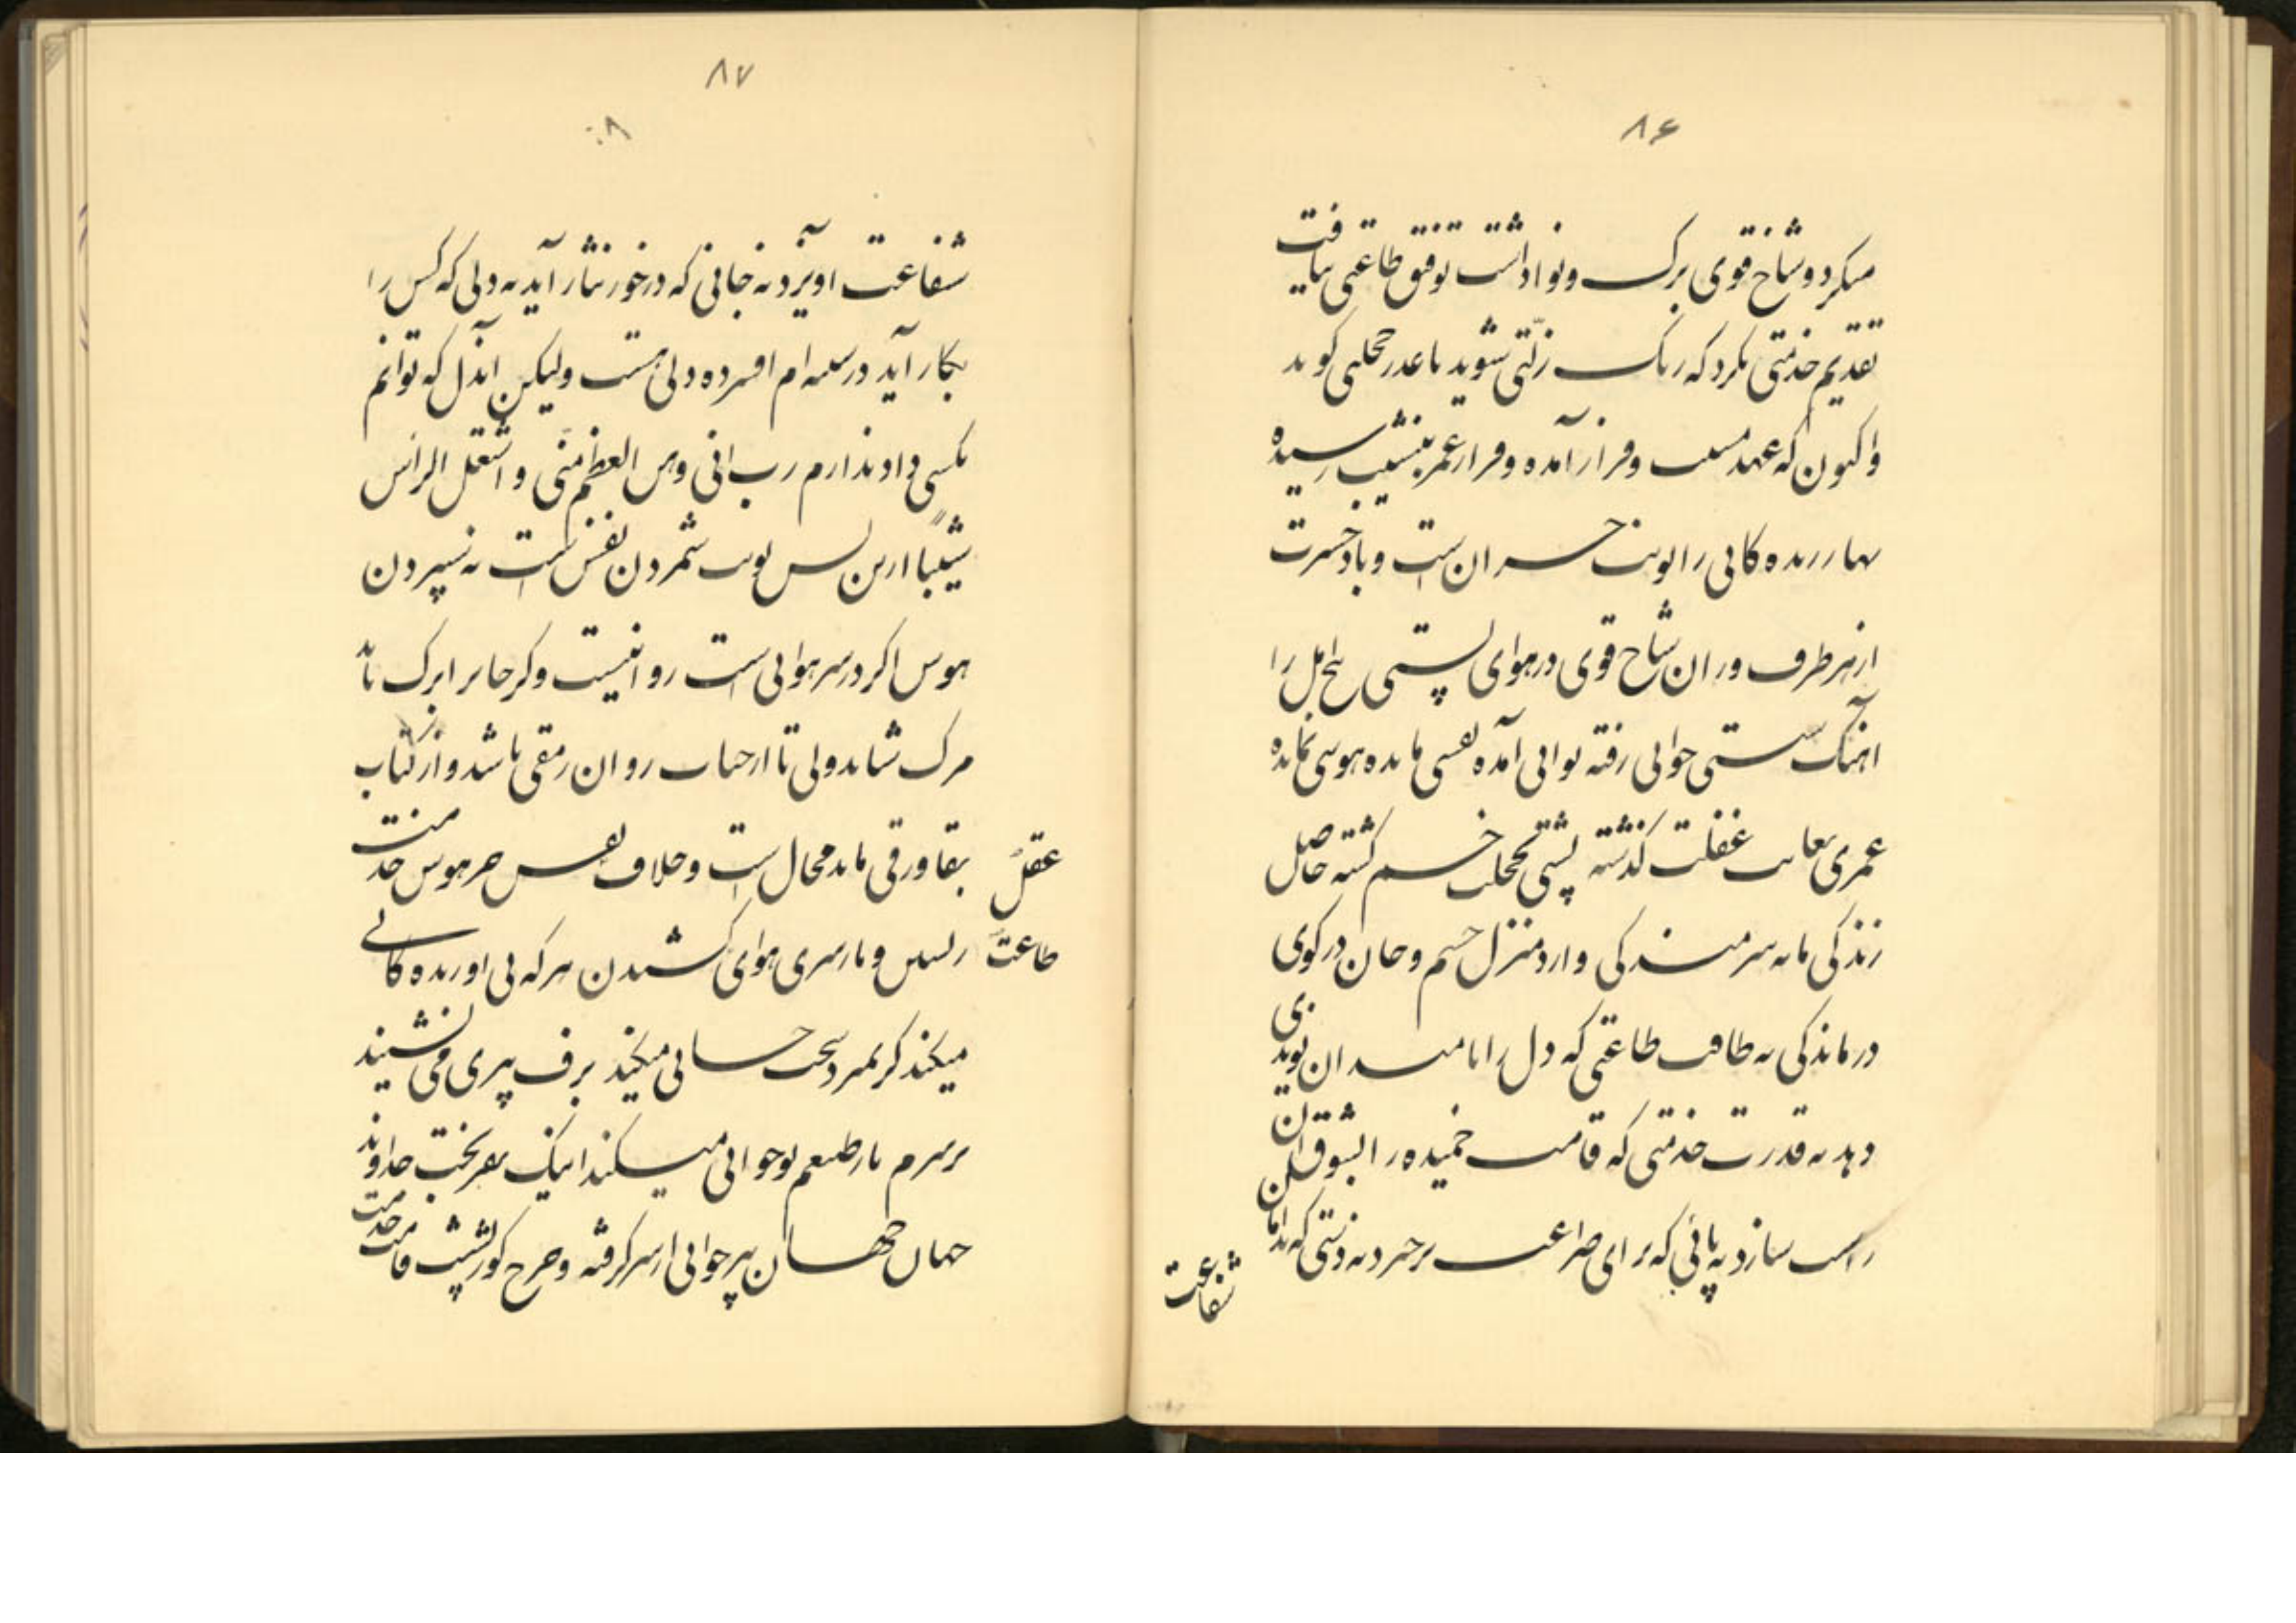 ۸۶
میکرد و شاخ قوی برک و نوا داشت توفیق طاعتی نیافت
تقدیم خدمتی نکرد که رنک زلتی بشوید یا عذر خجلتی کوید
واکنون که عهد مشیب و فراز آمده و فراز عمر بنشیب رسیده
بهار زنده کانی را نوبت خسران است و باد حسرت
از هر طرف وزان شاخ قوی در هوای پستی نخ امل را
آهنک سستی جوانی رفته نوانی آمده نفسی مانده هوسی نمانده
عمری بغایت غفلت کذشته پشتی بخجلت خم کشته حاصل
زندکی مایه شرمندکی وارد منزل جسم و جان در کوی
درماندکی نه طاقت طاعتی که دل را بامید آن نویدی
دهد نه قدرت خدمتی که قامت خمیده را بشوق آن
راست سازد نه پائی که برای ضراعت برخیزد نه دستی که بدامان
شفاعت
۸۷
شفاعت آویزد نه جانی که درخور نثار آید نه دلی که کس را
بکار آید در سینه ام افسرده دلی هست ولیکن آندل که توانم
بکسی داد ندارم رب انی وهن العظم منی و اشتعل الرأس
شیبا ازین پس نوبت شمردن نفس است نه سپردن
هوس اکر در سر هوایی است روا نیست و کر جا برابر ک ناید
مرک شاید ولی تا از حیات روان رمقی باشد و از کتاب
بقا ورقی ماند محال است و خلاف نفس جز هوس خدمت
عقل
زیستن و با سری هوای کشیدن هر که بی او زنده کانی
طاعت
میکند کر نمیرد سخت جانی میکند برف پیری می نشیند
بر سرم باز طبعم نوجوانی میکند اینک بفر بخت خداوند
جهان جهان پیر جوانی از سر کرفته و چرخ کوژپشت قامت خدمت